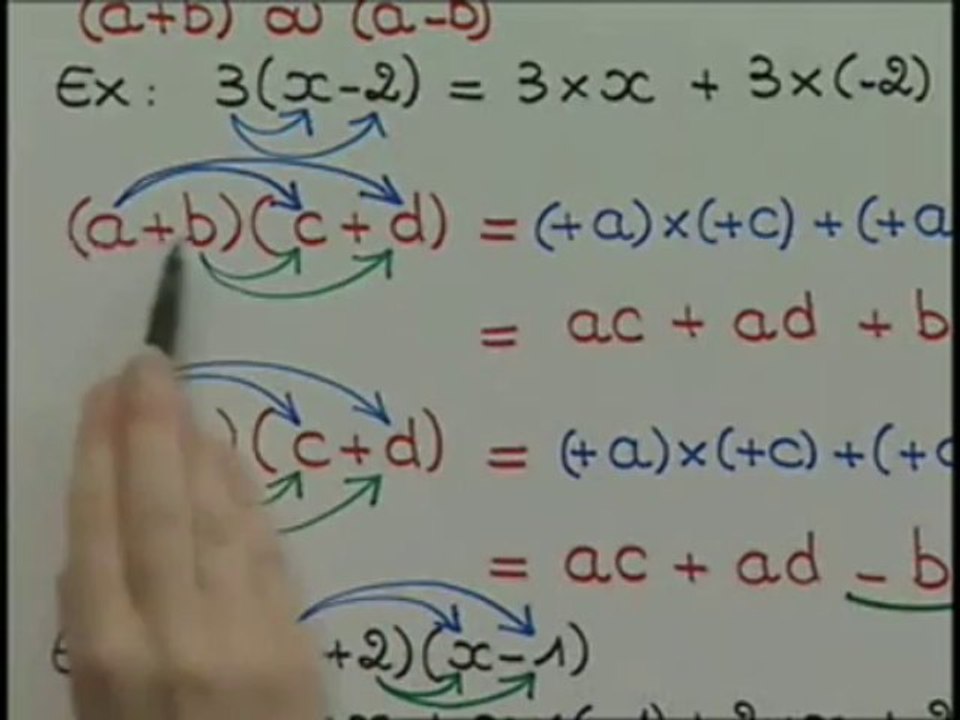 (a+b) ou (a-b)
Ex: 3(x-2) = 3×x + 3×(-2)
(a+b)(c+d) = (+a)×(+c) + (+a
= ac + ad + b
)(c+d) = (+a)×(+c) + (+
= ac + ad - b
+2)(x-1)